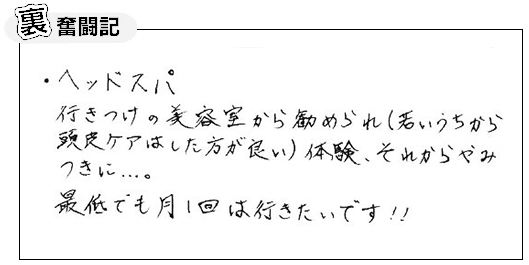 裏 奮闘記
・ヘッドスパ
行きつけの美容室から勧められ(若いうちから
頭皮ケアはした方が良い)体験、それからやみ
つきに…。
最低でも月1回は行きたいです!!